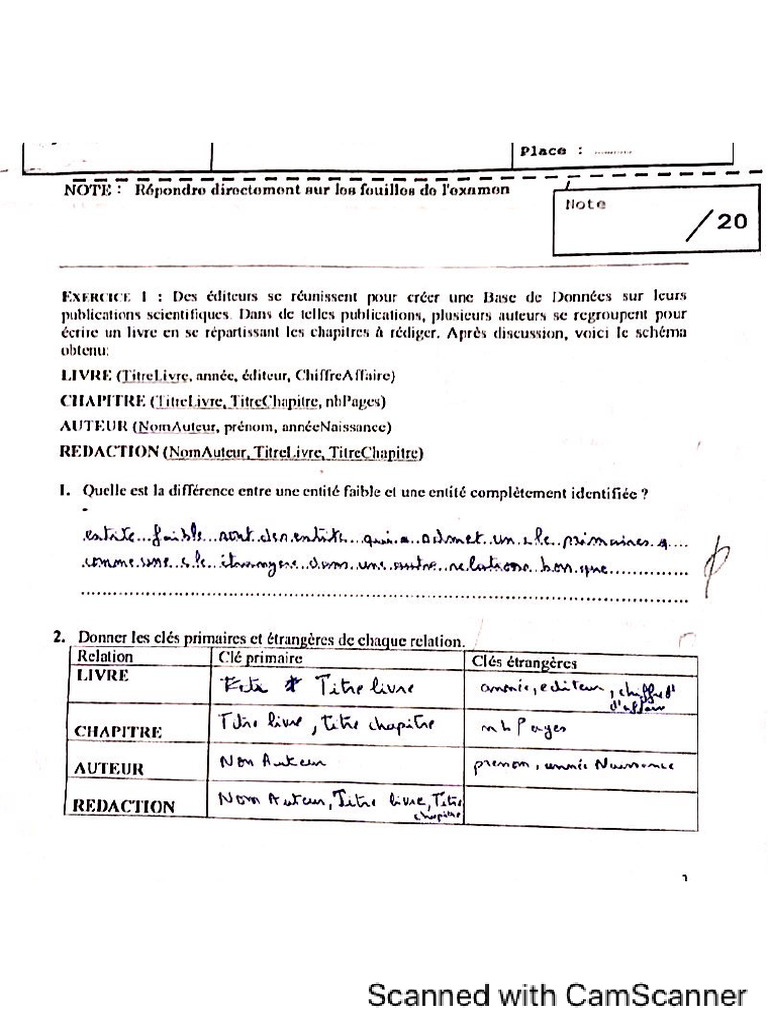 Place : ..........
NOTE : Répondre directement sur les feuilles de l'examen
Note
/20
EXERCICE 1 : Des éditeurs se réunissent pour créer une Base de Données sur leurs
publications scientifiques. Dans de telles publications, plusieurs auteurs se regroupent pour
écrire un livre en se répartissant les chapitres à rédiger. Après discussion, voici le schéma
obtenu:
LIVRE (TitreLivre, année, éditeur, ChiffreAffaire)
CHAPITRE (TitreLivre, TitreChapitre, nbPages)
AUTEUR (NomAuteur, prénom, annéeNaissance)
REDACTION (NomAuteur, TitreLivre, TitreChapitre)
1. Quelle est la différence entre une entité faible et une entité complètement identifiée ?
entite faible sont des entité qui admet un cle primaires
comme une cle étrangere dans une autre relations
2. Donner les clés primaires et étrangères de chaque relation.
Relation Clé primaire Clés étrangères
LIVRE Titre livre année, editeur, chiffre d'affaire
CHAPITRE Titre livre, titre chapitre nb Pages
AUTEUR Nom Auteur prenom, année Naissance
REDACTION Nom Auteur, Titre livre, Titre chapitre
Scanned with CamScanner